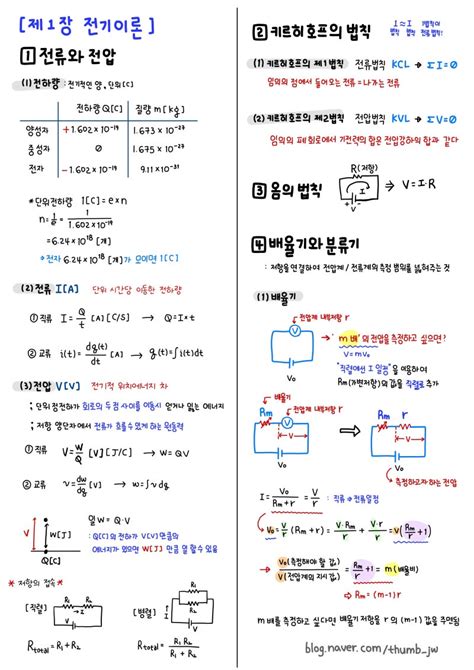 [제1장 전기이론]
1 전류와 전압
(1) 전하량 : 전기적인 양, 단위[C]
전하량 Q[C] 질량 m[kg]
양성자 +1.602×10⁻¹⁹ 1.673×10⁻²⁷
중성자 0 1.675×10⁻²⁷
전자 -1.602×10⁻¹⁹ 9.11×10⁻³¹
*단위전하량 1[C]=e×n
n=1/e=1/1.602×10⁻¹⁹
=6.24×10¹⁸[개]
전자 6.24×10¹⁸[개]가 모이면 1[C]
(2) 전류 I[A] 단위 시간당 이동한 전하량
① 직류 I=Q/t [A] [C/S] → Q=I×t
② 교류 i(t)=dq(t)/dt [A] → q(t)=∫i(t)dt
(3) 전압 V[V] 전기적 위치에너지 차
; 단위 점전하가 회로의 두 점 사이를 이동시 얻거나 잃는 에너지
; 저항 양단자에서 전류가 흐를 수 있게 하는 원동력
① 직류 V=W/Q [V] [J/C] → W=QV
② 교류 v=dw/dq [V] → w=∫v dq
V W[J] Q[C]
일 W=Q·V
; Q[C]의 전하가 V[V]만큼의
에너지가 있으면 W[J] 만큼 일 할 수 있음
* 저항의 접속 *
[직렬] R₁ R₂
R total=R₁+R₂
[병렬] R₁ R₂
R total=R₁R₂/R₁+R₂
2 키르히호프의 법칙
(1) 키르히호프의 제1법칙 전류법칙 KCL → ΣI=0
임의의 점에서 들어오는 전류=나가는 전류
(2) 키르히호프의 제2법칙 전압법칙 KVL → ΣV=0
임의의 폐회로에서 기전력의 합은 전압강하의 합과 같다
3 옴의 법칙
R(저항) I + V - → V=I·R
4 배율기와 분류기
: 저항을 연결하여 전압계/전류계의 측정 범위를 넓혀주는 것
(1) 배율기
전압계 내부저항 r
V V₀
'm배'의 전압을 측정하고 싶으면?
V=mV₀
"직렬에선 I 일정"을 이용하여
Rm(가변저항)의 값을 직렬로 추가
배율기 전압계 내부저항 r
Rm V V V₀
Rm r V V₀
측정하고자 하는 전압
I=V₀/Rm+r=V/r : 직류→전류일정
V₀=V/r(Rm+r)=V·Rm/r+V·r/r=V(Rm/r+1)
V₀(측정해야 할 값)/V(전압계의 지시값)=Rm/r+1=m(배율비)
→ Rm=(m-1)r
m배를 측정하고 싶다면 배율기 저항을 r의 (m-1)값을 주면됨
blog.naver.com/thumb_jw